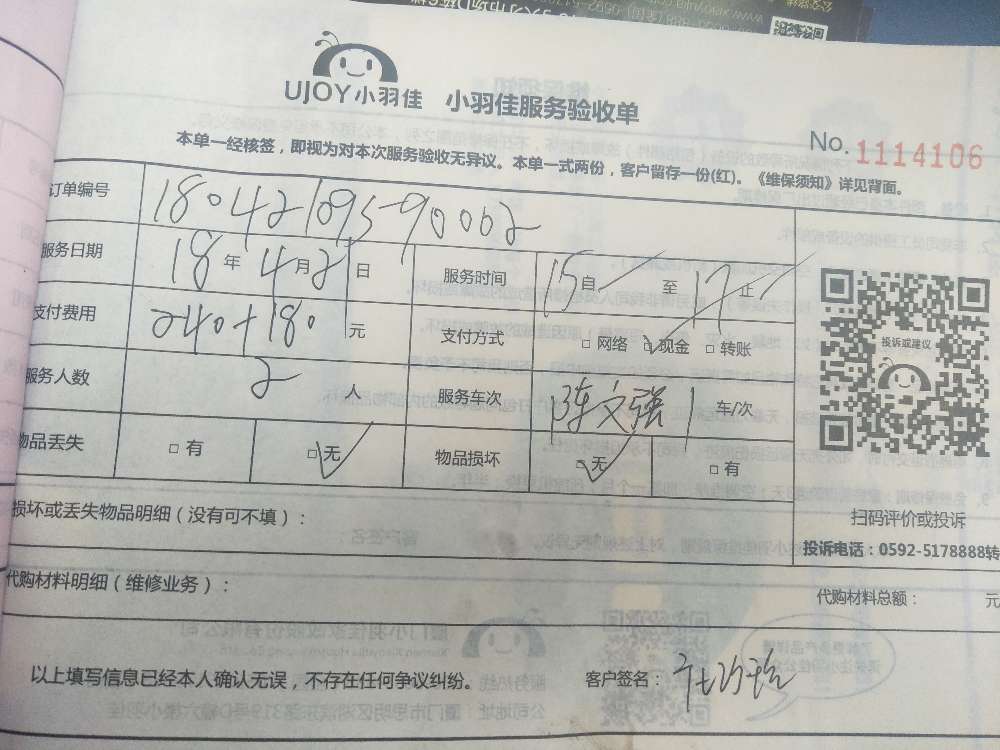 UJOY小羽佳 小羽佳服务验收单
No. 1114106
本单一经核签，即视为对本次服务验收无异议。本单一式两份，客户留存一份(红)。《维保须知》详见背面。
订单编号 18042109590002
服务日期 18 年 4 月 2 日 服务时间 15 自 至 17 止
支付费用 240+180 元 支付方式 □ 网络 ☑ 现金 □ 转账
投诉或建议
服务人数 2 人 服务车次 陈文强 1 车/次
物品丢失 □ 有 ☑ 无 物品损坏 ☑ 无 □ 有
损坏或丢失物品明细（没有可不填）：
扫码评价或投诉
投诉电话：0592-5178888转
代购材料明细（维修业务）：
代购材料总额： 元
以上填写信息已经本人确认无误，不存在任何争议纠纷。 客户签名：